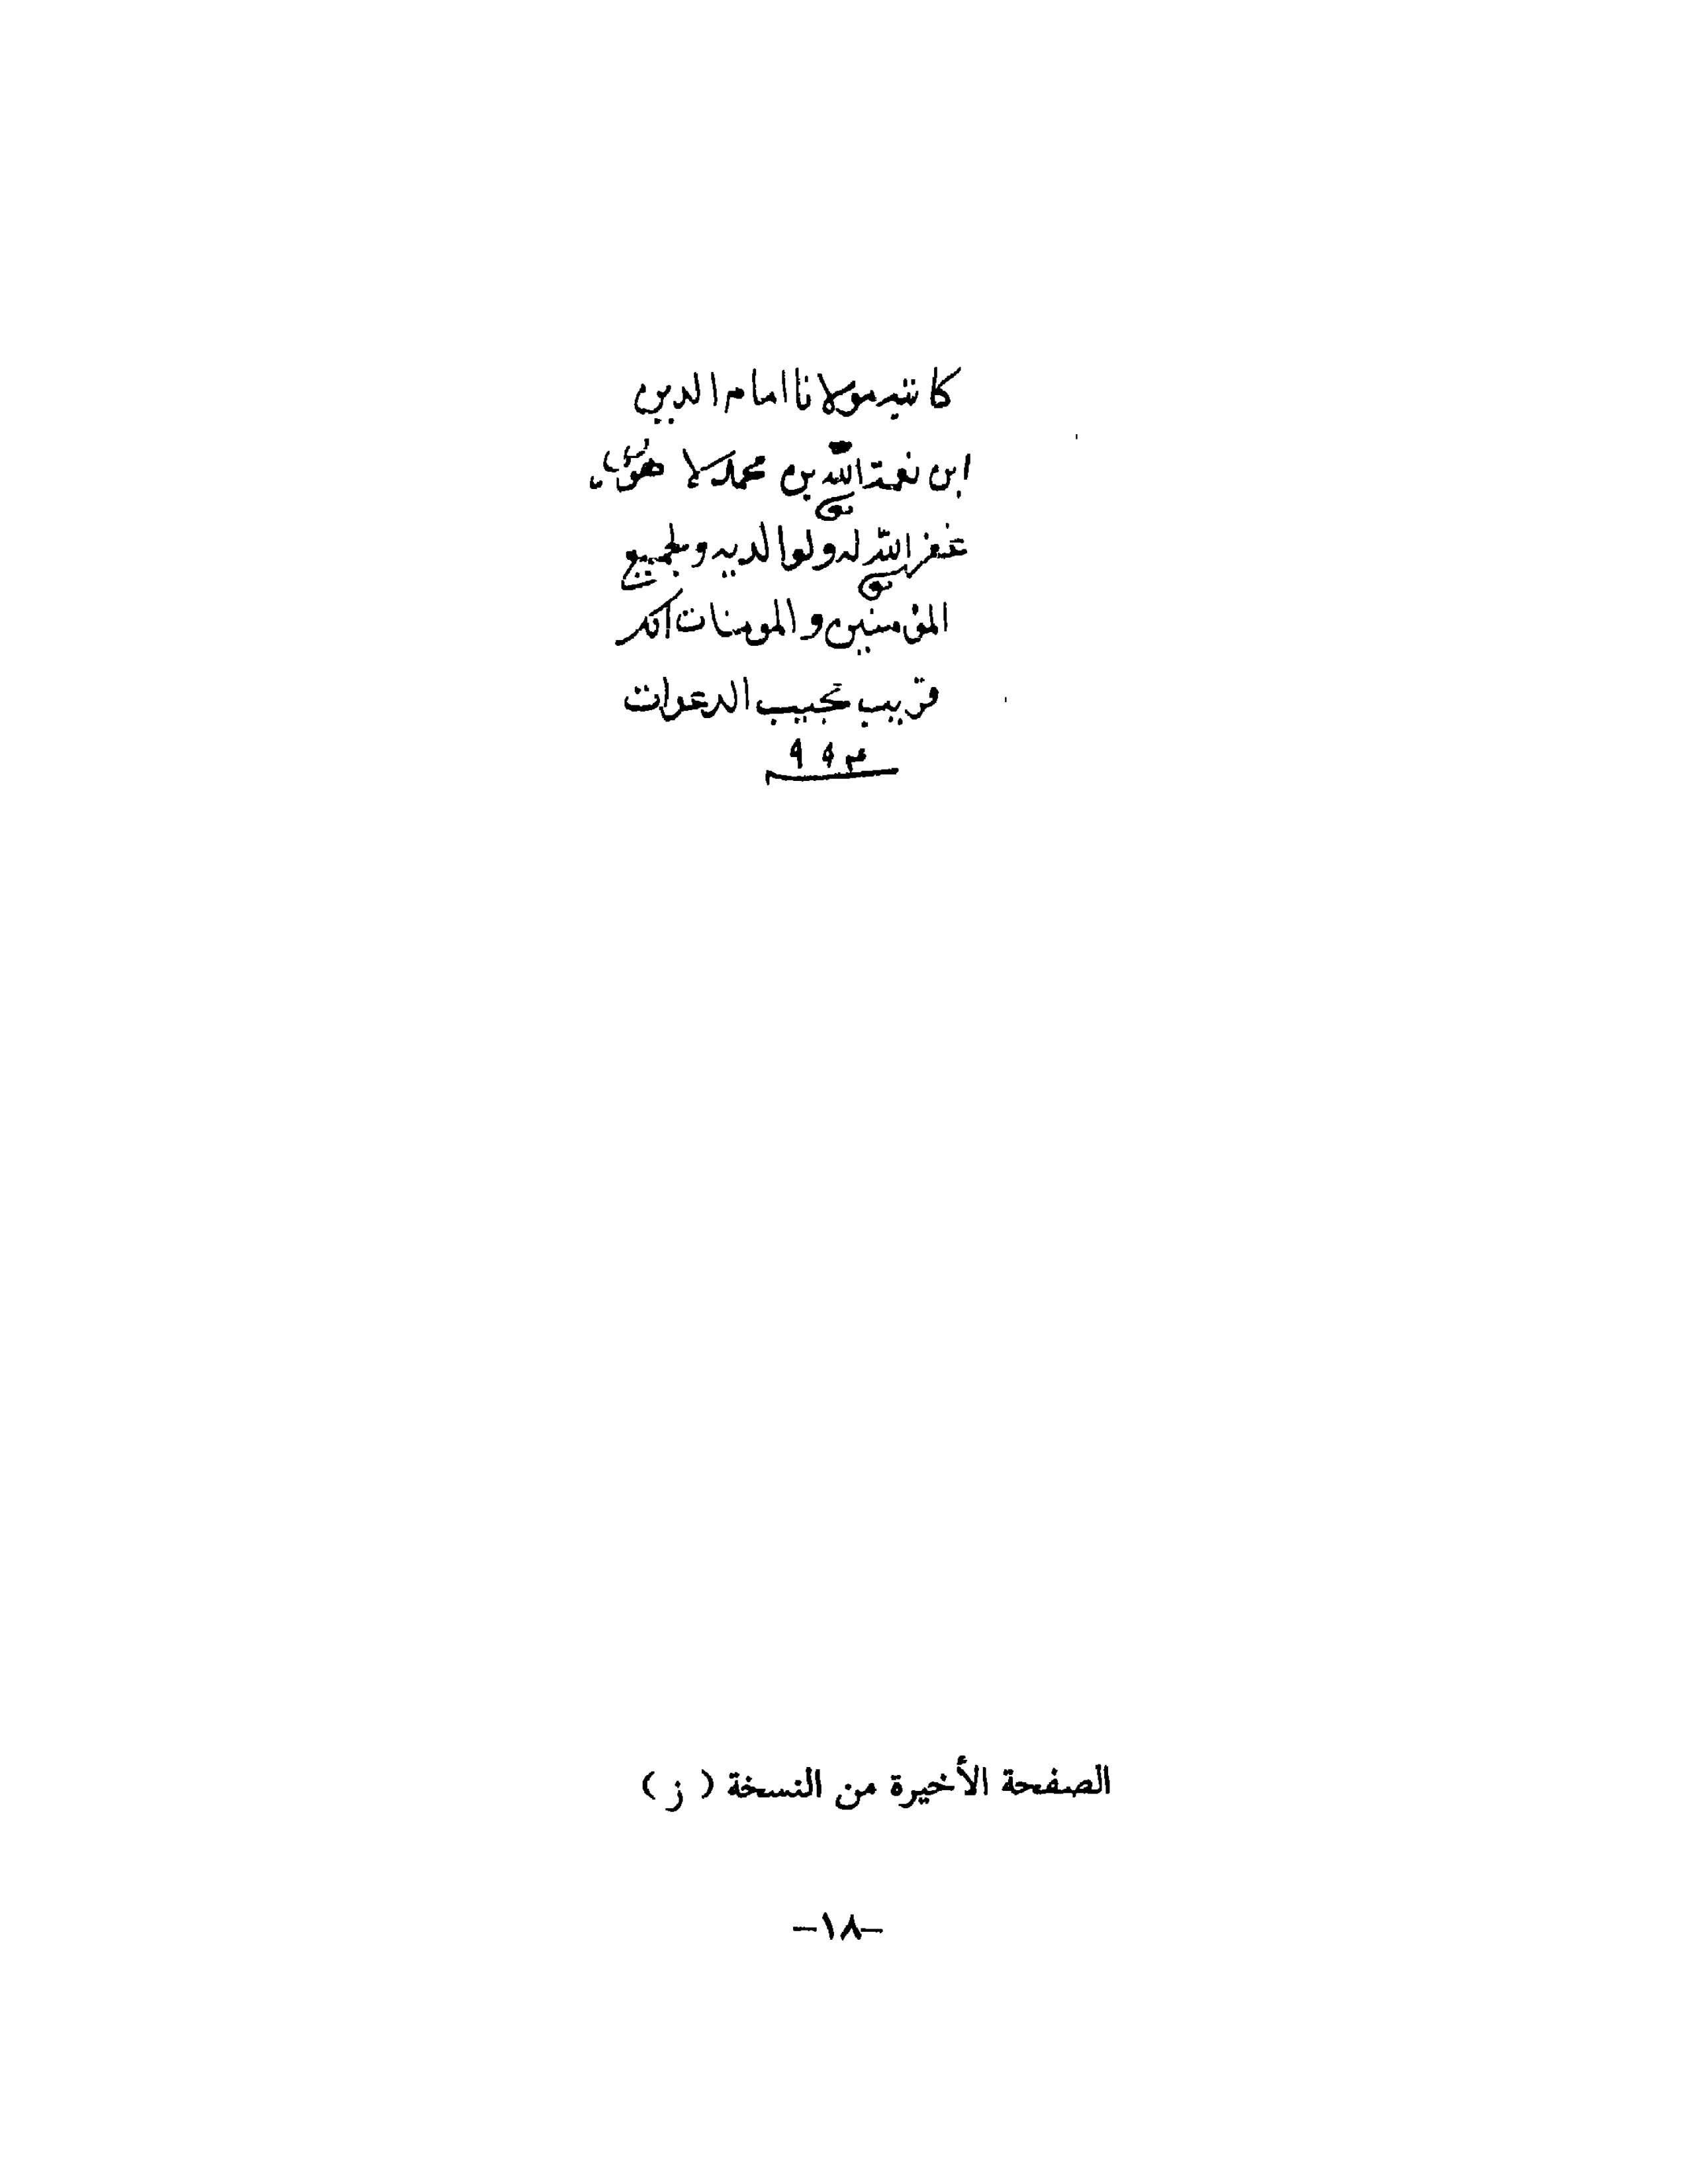 كاتبه مولانا امام الدين
ابن نعمة الله بن محمد لاهوري
غفر الله تعالى له ولوالديه ولجميع
المؤمنين والمومنات انك
قريب مجيب الدعوات
الصفحة الأخيرة من النسخة ( ز )
-١٨-